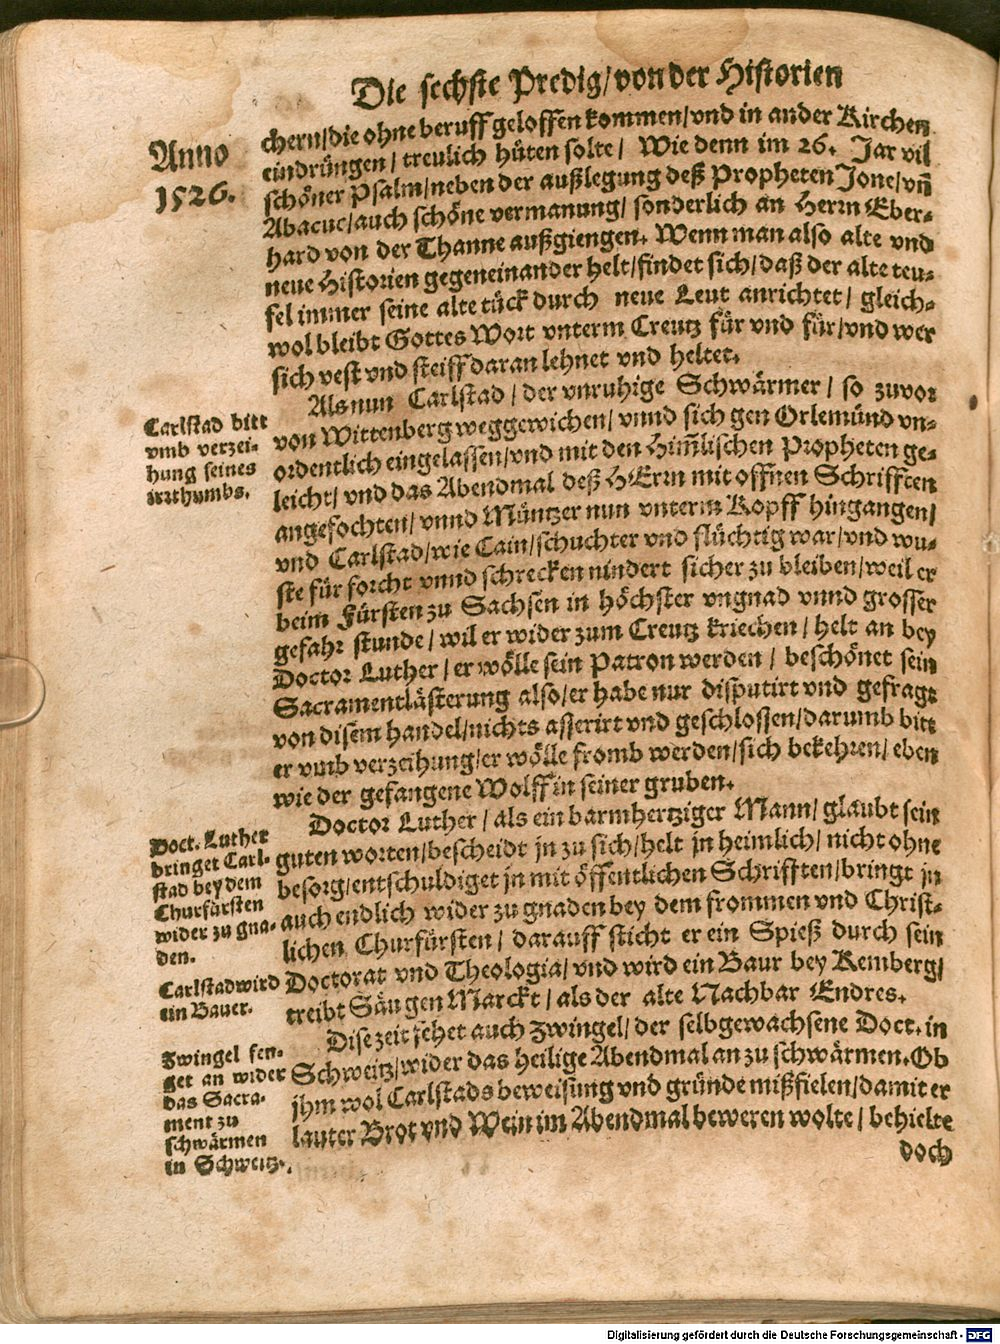 Die sechste Predig/ von der Historien
Anno
1526.
chern/ die ohne beruff geloffen kommen/ vnd in ander Kirchen
eindrüngen/ treulich hüten solte/ Wie denn im 26. Jar vil
schöner Psalm/ neben der außlegung deß Propheten Jone/ vn̄
Abacuc/ auch schöne vermanung/ sonderlich an Herrn Eber-
hard von der Thanne außgiengen. Wenn man also alte vnd
neue Historien gegeneinander helt/ findet sich/ daß der alte teu-
fel immer seine alte tück durch neue Leut anrichtet/ gleich-
wol bleibt Gottes Wort vnterm Creutz für vnd für/ vnd wer
sich vest vnd steiff daran lehnet vnd heltet.
Carlstad bitt
vmb verzei-
hung seines
irrthumbs.
Als nun Carlstad/ der vnruhige Schwärmer/ so zuvor
von Wittenberg weggewichen/ vnnd sich gen Orlemünd vn-
ordentlich eingelassen/ vnd mit den Him̄lischen Propheten ge-
leicht/ vnd das Abendmal deß HErrn mit offnen Schrifften
angefochten/ vnnd Müntzer nun vnterm Kopff hingangen/
vnd Carlstad/ wie Cain/ schuchter vnd flüchtig war/ vnd wu-
ste für forcht vnnd schrecken nindert sicher zu bleiben/ weil er
beim Fürsten zu Sachsen in höchster vngnad vnnd grosser
gefahr stunde/ wil er wider zum Creutz kriechen/ helt an bey
Doctor Luther/ er wölle sein Patron werden/ beschönet sein
Sacramentlästerung also/ er habe nur disputirt vnd gefragt
von disem handel/ nichts asserirt vnd geschlossen/ darumb bitt
er vmb verzeihung/ er wölle fromb werden/ sich bekehren/ eben
wie der gefangene Wolff in seiner gruben.
Doct. Luther
bringet Carl-
stad bey dem
Churfürsten
wider zu gna-
den.
Doctor Luther/ als ein barmhertziger Mann/ glaubt sein
guten worten/ bescheidt jn zu sich/ helt jn heimlich/ nicht ohne
besorg/ entschuldiget jn mit öffentlichen Schrifften/ bringt jn
auch endlich wider zu gnaden bey dem frommen vnd Christ-
lichen Churfürsten/ darauff sticht er ein Spieß durch sein
Carlstad wird
ein Bauer.
Doctorat vnd Theologia/ vnd wird ein Baur bey Kemberg/
treibt Säu gen Marckt/ als der alte Nachbar Endres.
Zwingel fen-
get an wider
das Sacra-
ment zu
schwärmen
in Schweitz.
Dise zeit fehet auch Zwingel/ der selbgewachsene Doct. in
Schweitz/ wider das heilige Abendmal an zu schwärmen. Ob
jhm wol Carlstads beweisung vnd gründe mißfielen/ damit er
lauter Brot vnd Wein im Abendmal beweren wolte/ behielte
doch
Digitalisierung gefördert durch die Deutsche Forschungsgemeinschaft - DFG